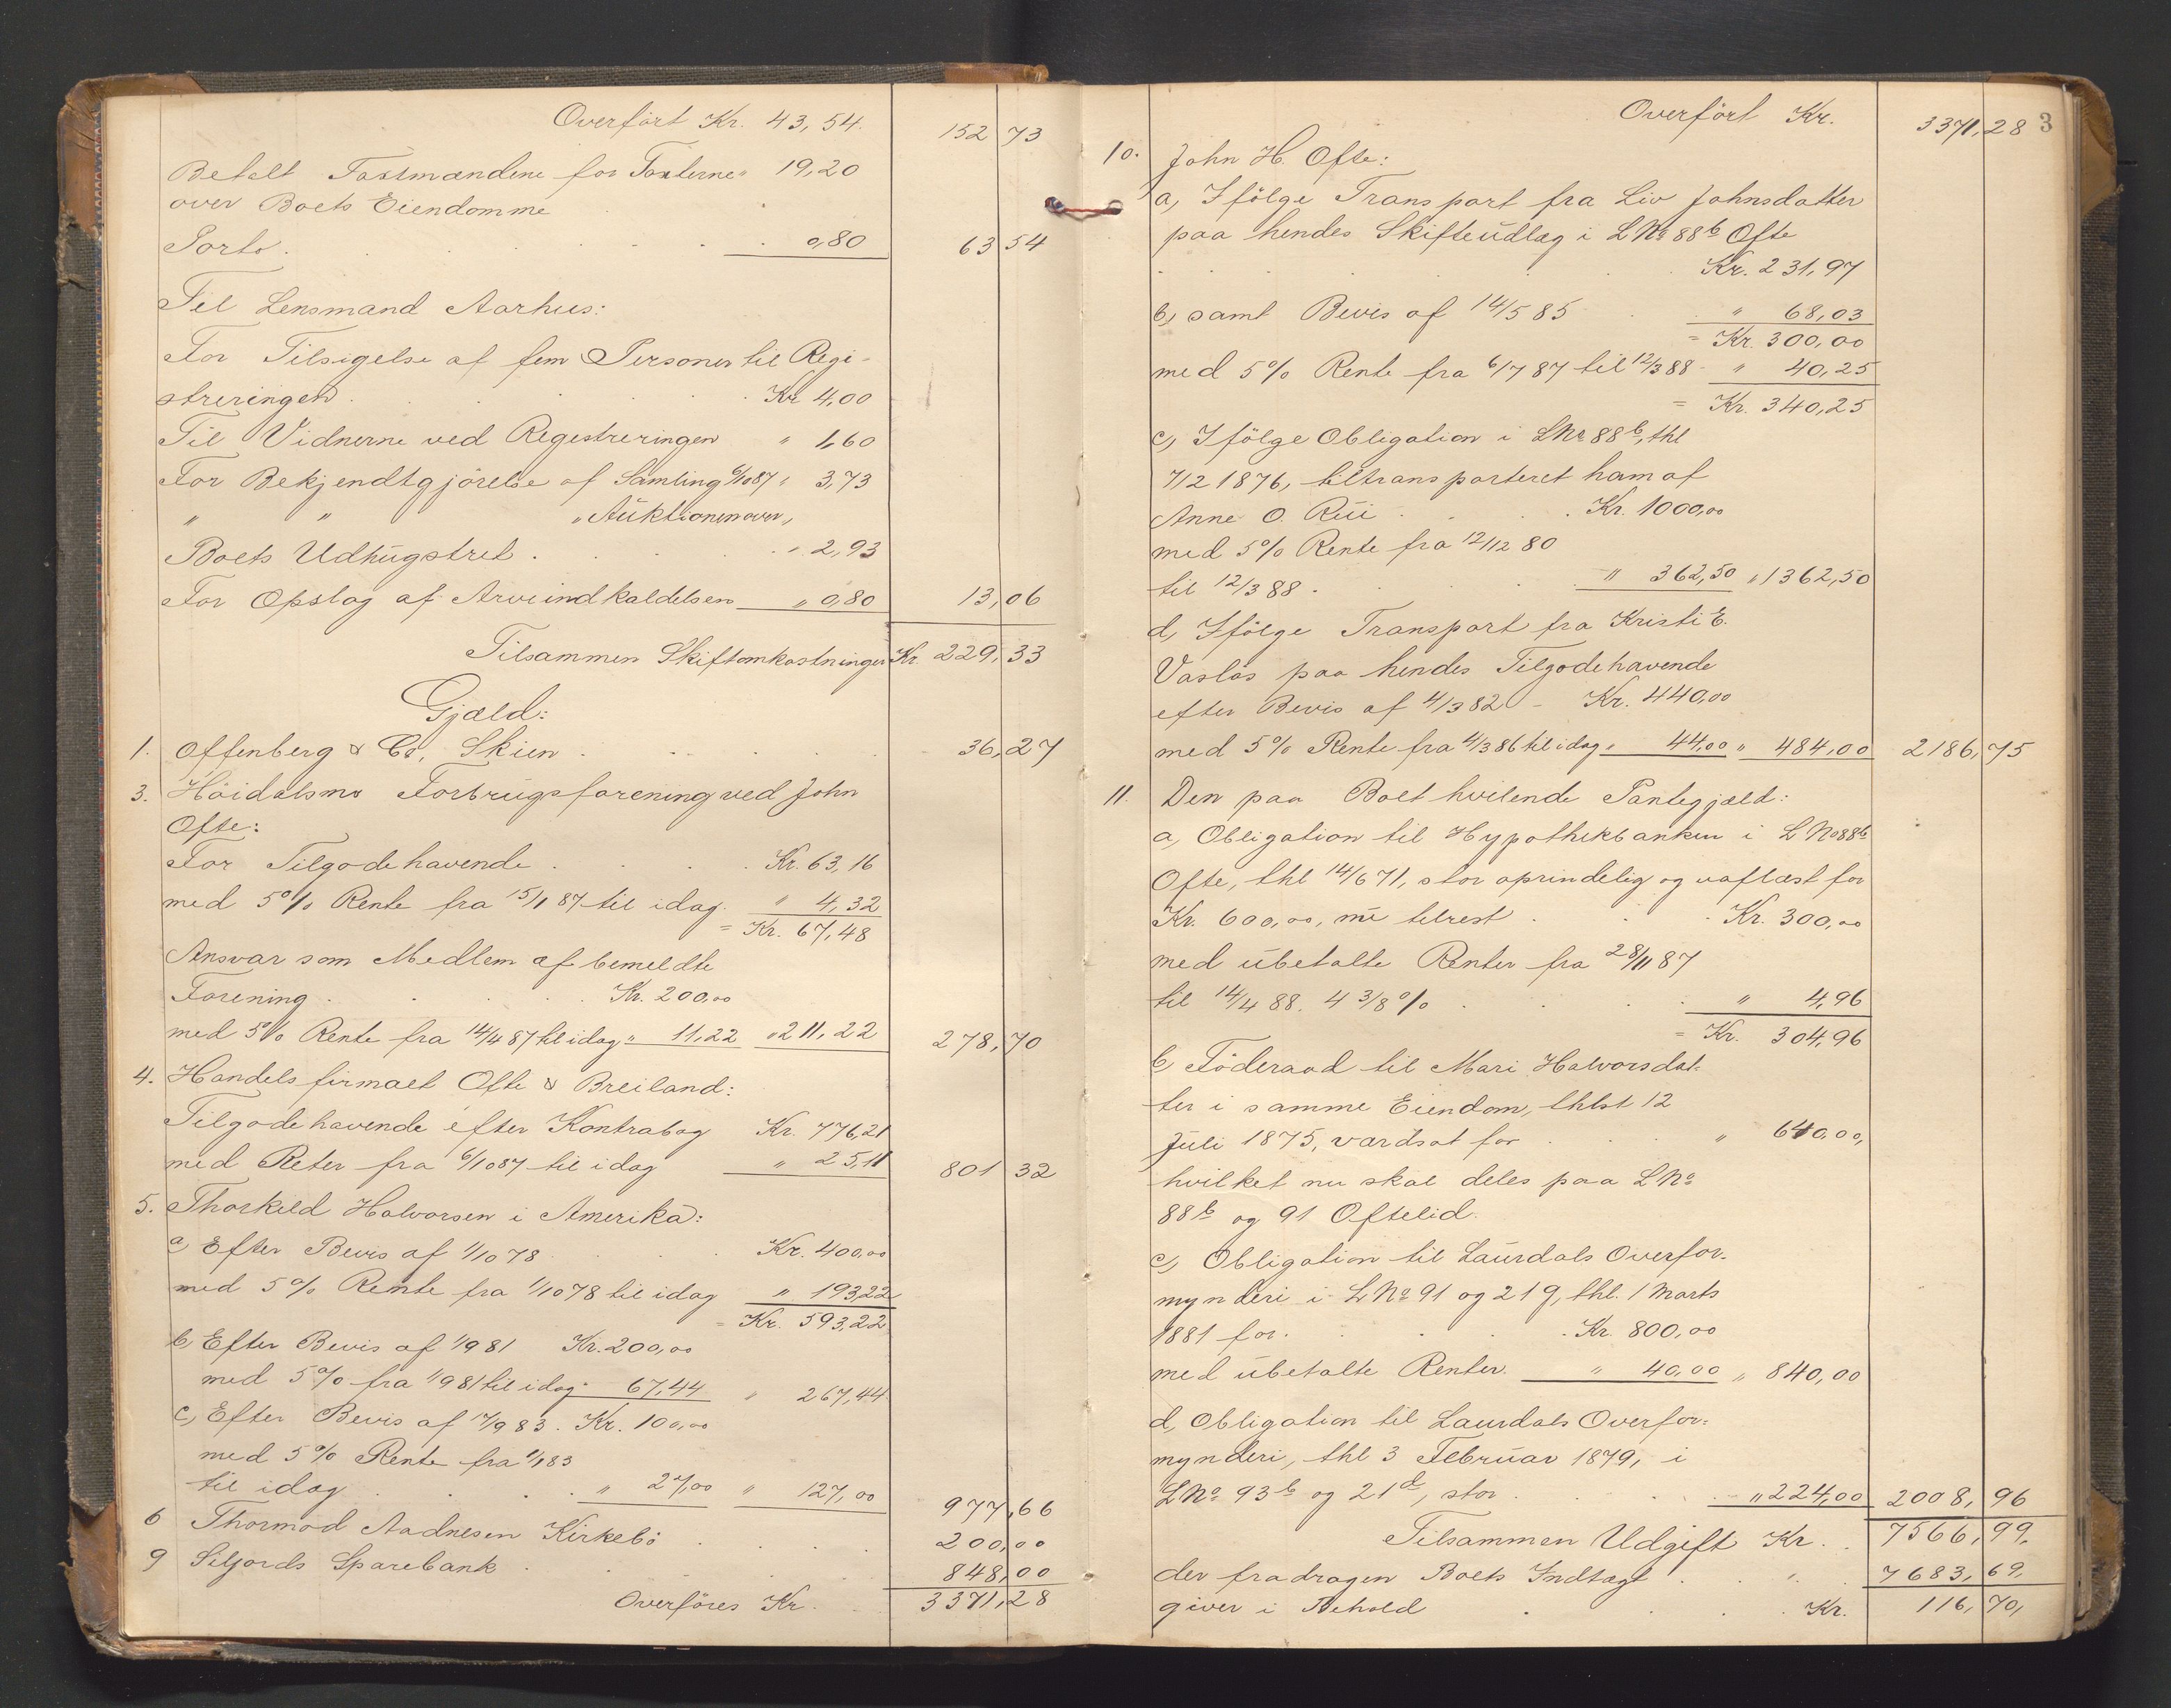 Overført Kr. 43,54. 152 73
Betalt Taxtmændene for Taxterne " 19,20
over Boets Eiendomme
Porto . 0,80 63 54
Til Lensmand Aarhus:
For Tilsigelse af fem Personer til Regi-
streringen . Kr 4,00
Til Vidnerne ved Registreringen " 1,60
For Bekjendtgjörelse af Samling 6/10 87 " 3,73
" " " Auktionen over,
Boets Udhugstret . " 2,93
For Opslag af Arveindkaldelsen " 0,80 13,06
Tilsammen Skiftomkostninger Kr. 229,33
Gjæld:
1. Offenberg & Co, Skien . 36,27
3. Höidalsmo Forbrugsforening ved John
Ofte:
For Tilgodehavende . Kr. 63,16
med 5% Rente fra 15/1 87 til idag. " 4,32
= Kr. 67,48
Ansvar som Medlem af bemeldte
Forening . Kr. 200,00
med 5% Rente fra 14/4 87 til idag " 11,22 " 211,22 278,70
4. Handelsfirmaet Ofte & Breiland:
Tilgodehavende efter Kontrabog Kr. 776,21
med Reter fra 6/10 87 til idag " 25,11 801 32
5. Thorkild Halvorsen i Amerika:
a, Efter Bevis af 1/10 78 . Kr. 400,00
med 5% Rente fra 1/10 78 til idag " 193,22
= Kr. 593,22
b, Efter Bevis af 1/9 81 Kr. 200,00
med 5% fra 1/9 81 til idag " 67,44 " 267,44
c, Efter Bevis af 17/9 83. Kr. 100,00
med 5% Rente fra 1/1 83
til idag . " 27,00 " 127,00 977,66
6 Thormod Aadnesen Kirkebö . 200,00
9 Siljords Sparebank . 848,00
Overföres Kr. 3371,28
3
Overført Kr. 3371,28
10. John H. Ofte:
a, Ifölge Transport fra Liv Johnsdatter
paa hendes Skifteudlæg i LNo 88b Ofte
Kr. 231,97
b, samt Bevis af 14/5 85 " 68,03
= Kr. 300,00
med 5% Rente fra 6/7 87 til 12/3 88 " 40,25
= Kr. 340,25
c, Ifölge Obligation i LNr 88b, thl
7/2 1876, tiltransporteret ham af
Anne O. Rui . Kr. 1000,00
med 5% Rente fra 12/12 80
til 12/3 88 . " 362,50 " 1362,50
d, Ifölge Transport fra Kristi E.
Vaslös paa hendes Tilgodehavende
efter Bevis af 4/3 82 - Kr. 440,00
med 5% Rente fra 4/3 86 til idag " 44,00 " 484,00 2186,75
11. Den paa Boet hvilende Pantegjæld:
a, Obligation til Hypothekbanken i LNo 88b
Ofte, thl 14/6 71, stor oprindelig og uaflæst for
Kr. 600,00, nu tilrest . Kr. 300,00
med ubetalte Renter fra 28/11 87
til 14/4 88. 4 3/8 % . " 4,96
= Kr. 304,96
b, Föderaad til Mari Halvorsdat-
ter i samme Eiendom, thlst 12
Juli 1875, værdsat for . " 640,00,
hvilket nu skal deles paa LNo
88b og 91 Oftelid.
c, Obligation til Laurdals Overfor-
mynderi i LNo 91 og 219, thl. 1 Marts
1881 for . Kr. 800,00
med ubetalte Renter. " 40,00 " 840,00
d, Obligation til Laurdals Overfor-
mynderi, thl 3 Februar 1879, i
LNo 93b og 21d, stor . " 224,00 2008,96
Tilsammen Udgift Kr. 7566,99,
der fradragen Boets Indtægt . " 7683,69,
giver i Behold . Kr. 116,70,